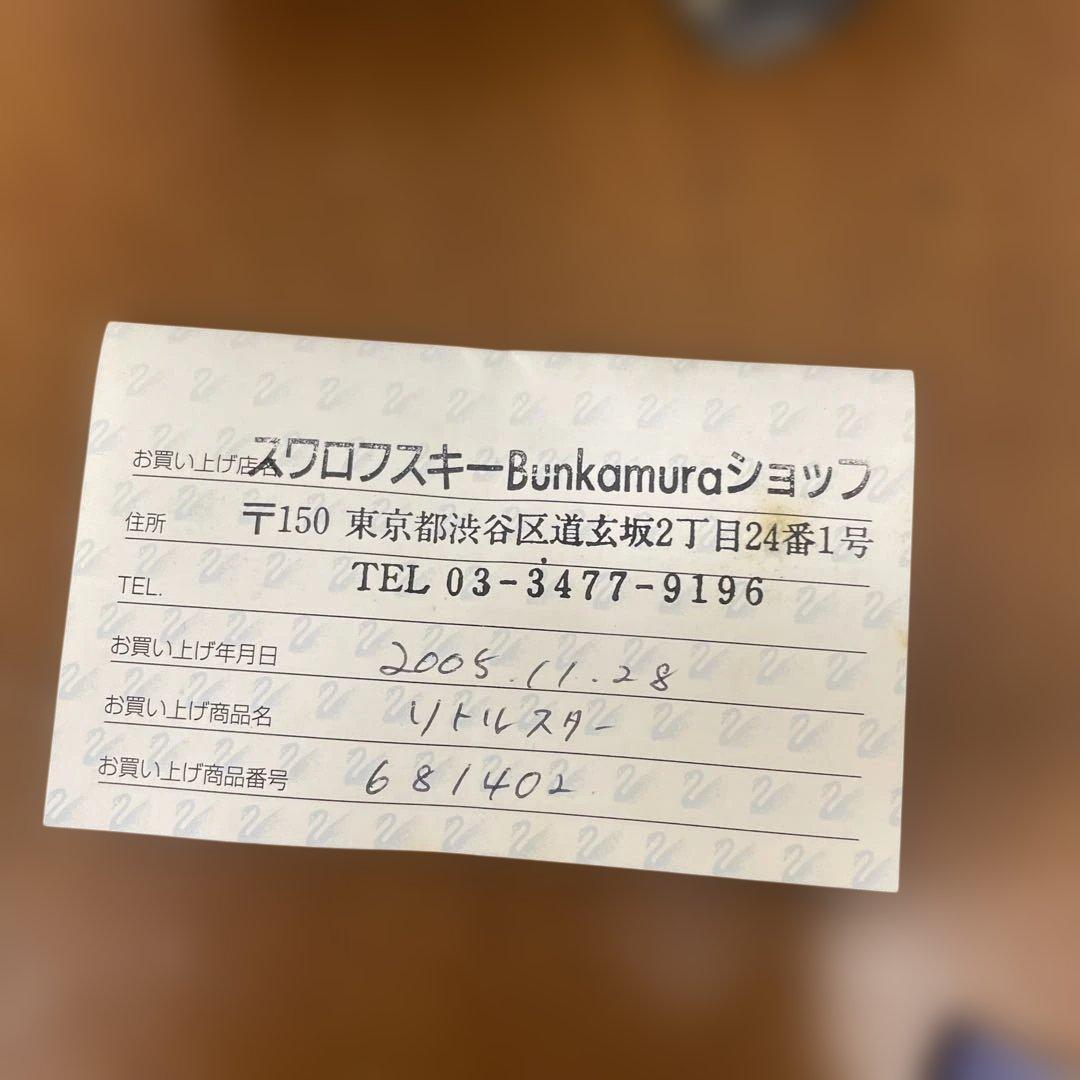 お買い上げ店名 スワロフスキーBunkamuraショップ
住所 〒150 東京都渋谷区道玄坂2丁目24番1号
TEL. TEL 03-3477-9196
お買い上げ年月日 2005.11.28
お買い上げ商品名 リトルスター
お買い上げ商品番号 681402